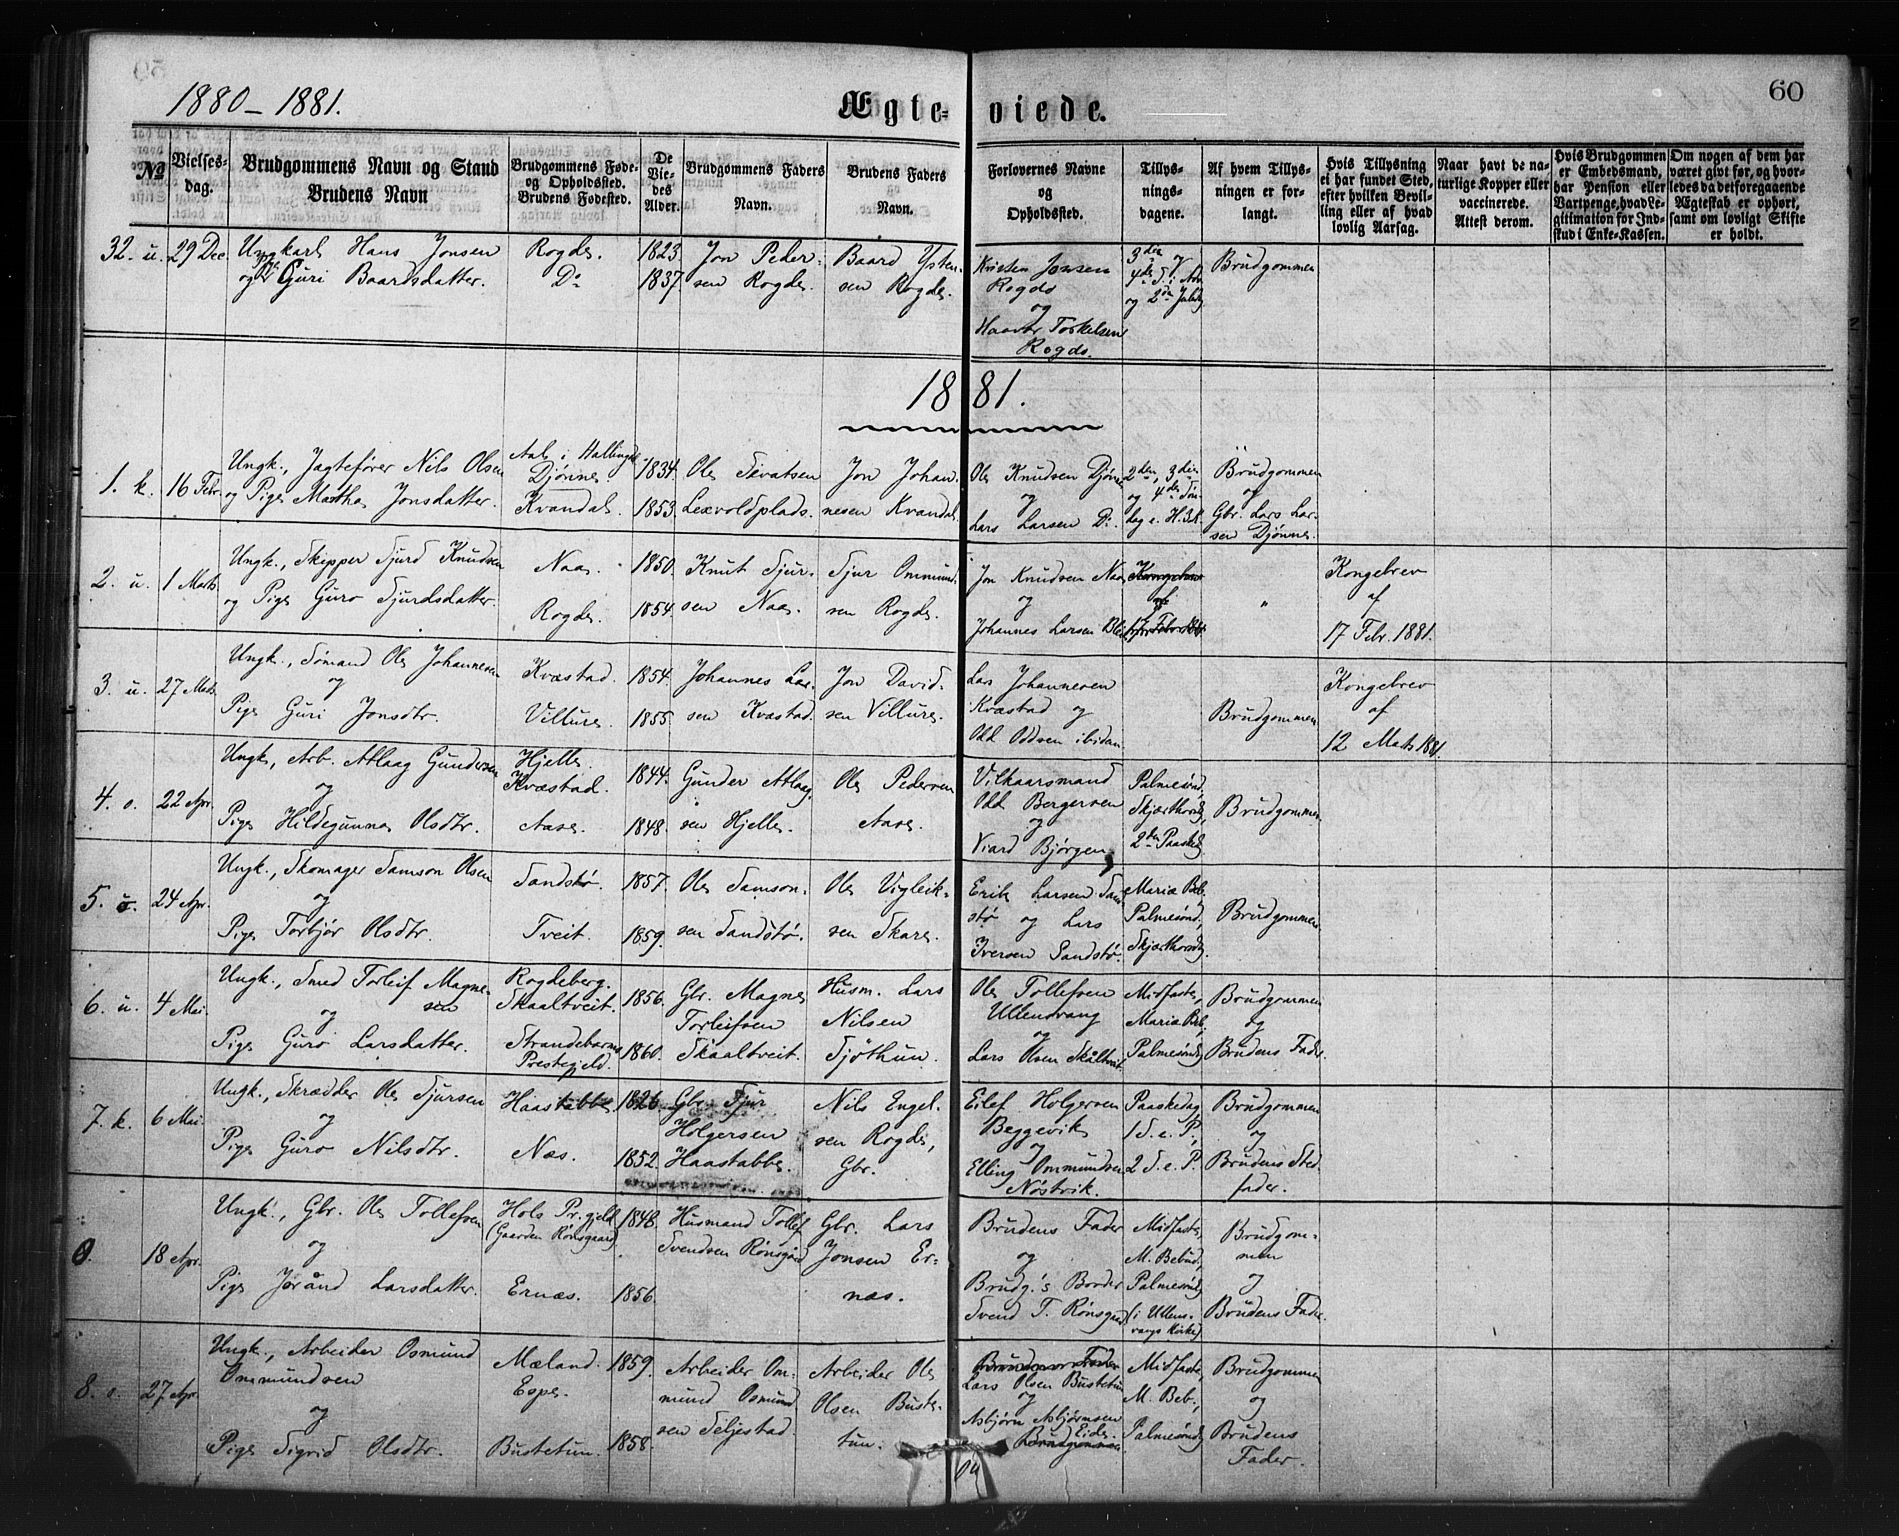 1880 – 1881.
Ægte- viede.
60
No
Vielses-
dag.
Brudgommens Navn og Stand
Brudens Navn
Brudgommens Føde-
og Opholdssted.
Brudens Fødested.
De
Vie-
des
Alder.
Brudgommens Faders
Navn.
Brudens Faders
Navn.
Forlovernes Navne
og
Opholdssted.
Tillys-
nings-
dagene.
Af hvem Tillys-
ningen er for-
langt.
Hvis Tillysning
ei har fundet Sted,
efter hvilken Bevil-
ling eller af hvad
lovlig Aarsag.
Naar havt de na-
turlige Kopper eller
vaccinerede.
Attest derom.
Hvis Brudgommen
er Embedsmand,
har Pension eller
Vartpenge, hvad Le-
gitimation for Ind-
skud i Enke-Kassen.
Om nogen af dem har
været givt før, og hvor-
ledes da det foregaaende
Ægteskab er ophørt,
samt om lovligt Skifte
er holdt.
32. u. 29 Dec.
Ungkarl Hans Jonsen
og Guri Baardsdatter.
Rogde.
Do
1823
1837.
Jon Peder-
sen Rogde.
Baard Ysten-
sen Rogde.
Kristen Jonsen
Rogde
og
Haavar Torkelsen
Rogde.
3die og
4de S. i Adv.
og 2den Juledg
Brudgommen
1881.
1. k. 16 Febr.
Ungk., Jægtefører Nils Olsen
og Pige Martha Jonsdatter.
Aal i Hallingd.
Djønne
Kvandal.
1834.
1853.
Ole Sevatsen
Lexvoldplads.
Jon Johan-
nesen Kvandal.
Ole Knudsen Djønne
og
Lars Larsen Do
2den, 3die
og 4de Søn-
dag e. H.3.K.
Brudgommen
og
Gbr. Lars Lar-
sen Djønne.
2. u. 1 Marts.
Ungk., Skipper Sjurd Knudsen
og Pige Guro Sjurdsdatter.
Naa.
Rogde.
1850.
1854.
Knut Sjur-
sen Naa.
Sjur Ommund-
sen Rogde.
Jon Knudsen Naa
og
Johannes Larsen
Kongebrev
af
17 Febr. 1881.
"
Kongebrev
af
17 Febr. 1881.
3. u. 27 Marts.
Ungk., Sømand Ole Johannesen
og
Pige Guri Jonsdtr.
Kvæstad.
Villure.
1854.
1855.
Johannes Lar-
sen Kvæstad.
Jon David-
sen Villure.
Lars Johannesen
Kvæstad og
Odd Oddsen ibidem
Brudgommen
Kongebrev
af
12 Marts 1881.
4. o. 22 Apr.
Ungk., Arb. Atlaag Gundersen
og
Pige Hildegunna Olsdtr.
Hjelle.
Kvæstad.
Aase.
1844.
1848.
Gunder Atlaag-
sen Hjelle.
Ole Pedersen
Aase.
Vilkaarsmand
Odd Bergersen
og
Viard Bjørgen
Palmesønd.,
Skjærthorsdg,
2den Paaskedg.
Brudgommen
5. u. 24 Apr.
Ungk., Skomager Samson Olsen
og
Pige Torbjør Olsdtr.
Sandstø.
Tveit.
1857.
1859.
Ole Samson-
sen Sandstø.
Ole Vigleik-
sen Skare.
Erik Larsen Sand-
stø og Lars
Iversen Sandstø.
Mariæ Beb.,
Palmesønd.,
Skjærthorsdg.
Brudgommen
6. u. 4 Mai.
Ungk., Smed Torleif Magne-
sen
og
Pige Guro Larsdatter.
Rogdeberg.
Skaaltveit.
Strandebarms
Prestegjeld.
1856.
1860.
Gbr. Magne
Torleifsen
Skaaltveit.
Husm. Lars
Nilsen
Sjøthun.
Ole Tollefsen
Ullensvang
og
Lars Olsen Skåltveit
Midfaste,
Mariæ Beb.,
Palmesøndg
Brudgommen
og
Brudens Fader.
7. k. 6 Mai.
Ungk., Skrædder Ole Sjursen
og
Pige Guro Nilsdtr.
Haastabbe.
Næs.
1826.
1852.
Gbr. Sjur
Holgersen
Haastabbe.
Nils Engel-
sen Rogde,
Gbr.
Eilef Holgersen
Beggevik
og
Elling Ommundsen
Nøstvik.
Paaskedag,
1 S. e. P.,
2 S. e. P.
Brudgommen
og
Brudens Sted-
fader.
0. 18 Apr.
Ungk., Gbr. Ole Tollefsen
og
Pige Jørånd Larsdatter.
Hols Pr.gjeld
(Gaarden Rønsgaard)
Ernæs.
1848.
1856.
Husmand Tollef
Svendsen Rønsgård
Gbr. Lars
Jonsen Er-
næs.
Brudens Fader
og
Brudg.'s Broder
Svend T. Rønsgaard
Midfaste,
M. Bebud.,
Palmesøndg
(i Ullens-
vangs Kirke)
Brudgom-
men
og
Brudens Fader.
8. o. 27 Apr.
Ungk., Arbeider Osmund
Ommundsen
og
Pige Sigrid Olsdtr.
Mæland.
Espe.
Bustetun.
1859.
1858.
Arbeider Om-
mund Osmund-
sen Seljestad.
Arbeider Ole
Olsen Buste-
tun.
Brudens Fader
Lars Olsen Bustetun
og
Asbjørn Asbjørnsen
Eide.
Brudgommen
Midfaste,
M. Beb.,
Palmesøndg
Brudgommen
og
Brudens
Fader.